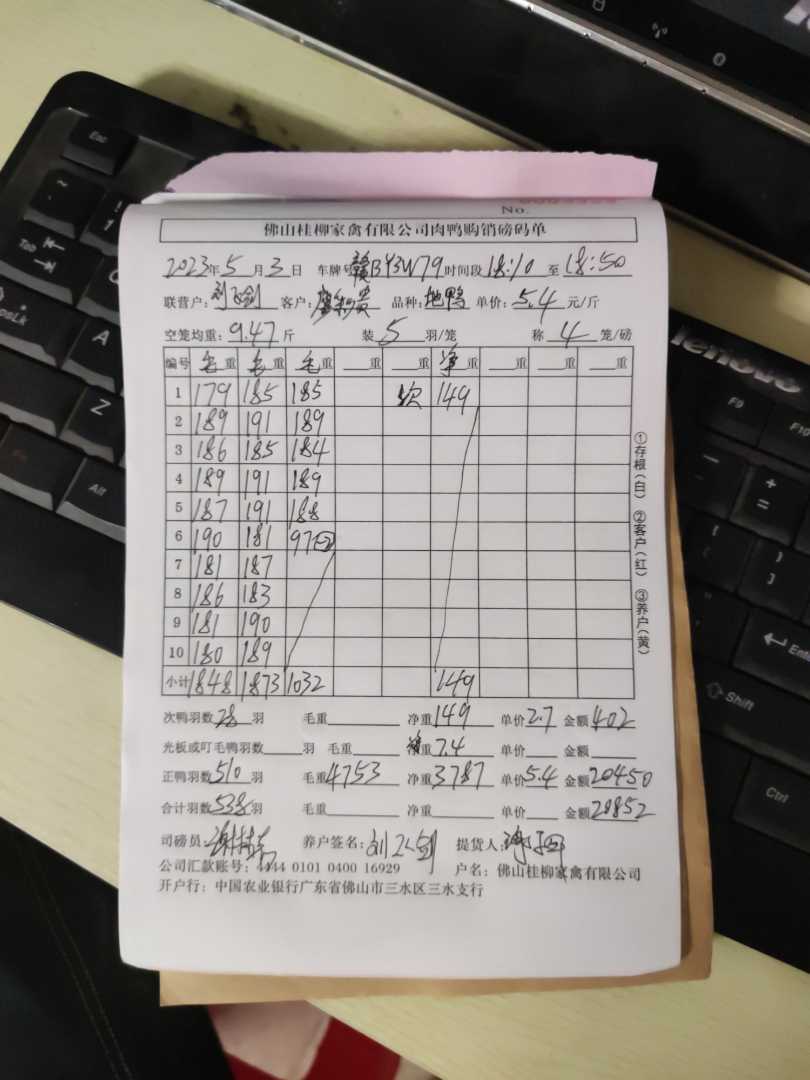 No.
佛山桂柳家禽有限公司肉鸭购销磅码单
2023年5月3日 车牌号赣BY3W79时间段18:10至18:50
联营户: 客户: 品种:地鸭 单价:5.4元/斤
空笼均重:9.47斤 装5羽/笼 称4笼/磅
编号 毛重 毛重 毛重 重 重 净重 重 重 重
1 179 185 185 次 149
2 189 191 189
3 186 185 184
4 189 191 189
5 187 191 188
6 190 181 97
7 181 187
8 186 183
9 181 190
10 180 189
小计 1848 1873 1032 149
次鸭羽数28羽 毛重 净重149 单价2.7 金额402
光板或叮毛鸭羽数 羽 毛重 重7.4 单价 金额
正鸭羽数510羽 毛重4753 净重3787 单价5.4 金额20450
合计羽数538羽 毛重 净重 单价 金额20852
司磅员: 养户签名: 提货人:
公司汇款账号:4444 0101 0400 16929 户名:佛山桂柳家禽有限公司
开户行:中国农业银行广东省佛山市三水区三水支行
①存根(白) ②客户(红) ③养户(黄)
lenovo
Esc
Tab
A
Z
Alt
F9
F10
Enter
Shift
Ctrl